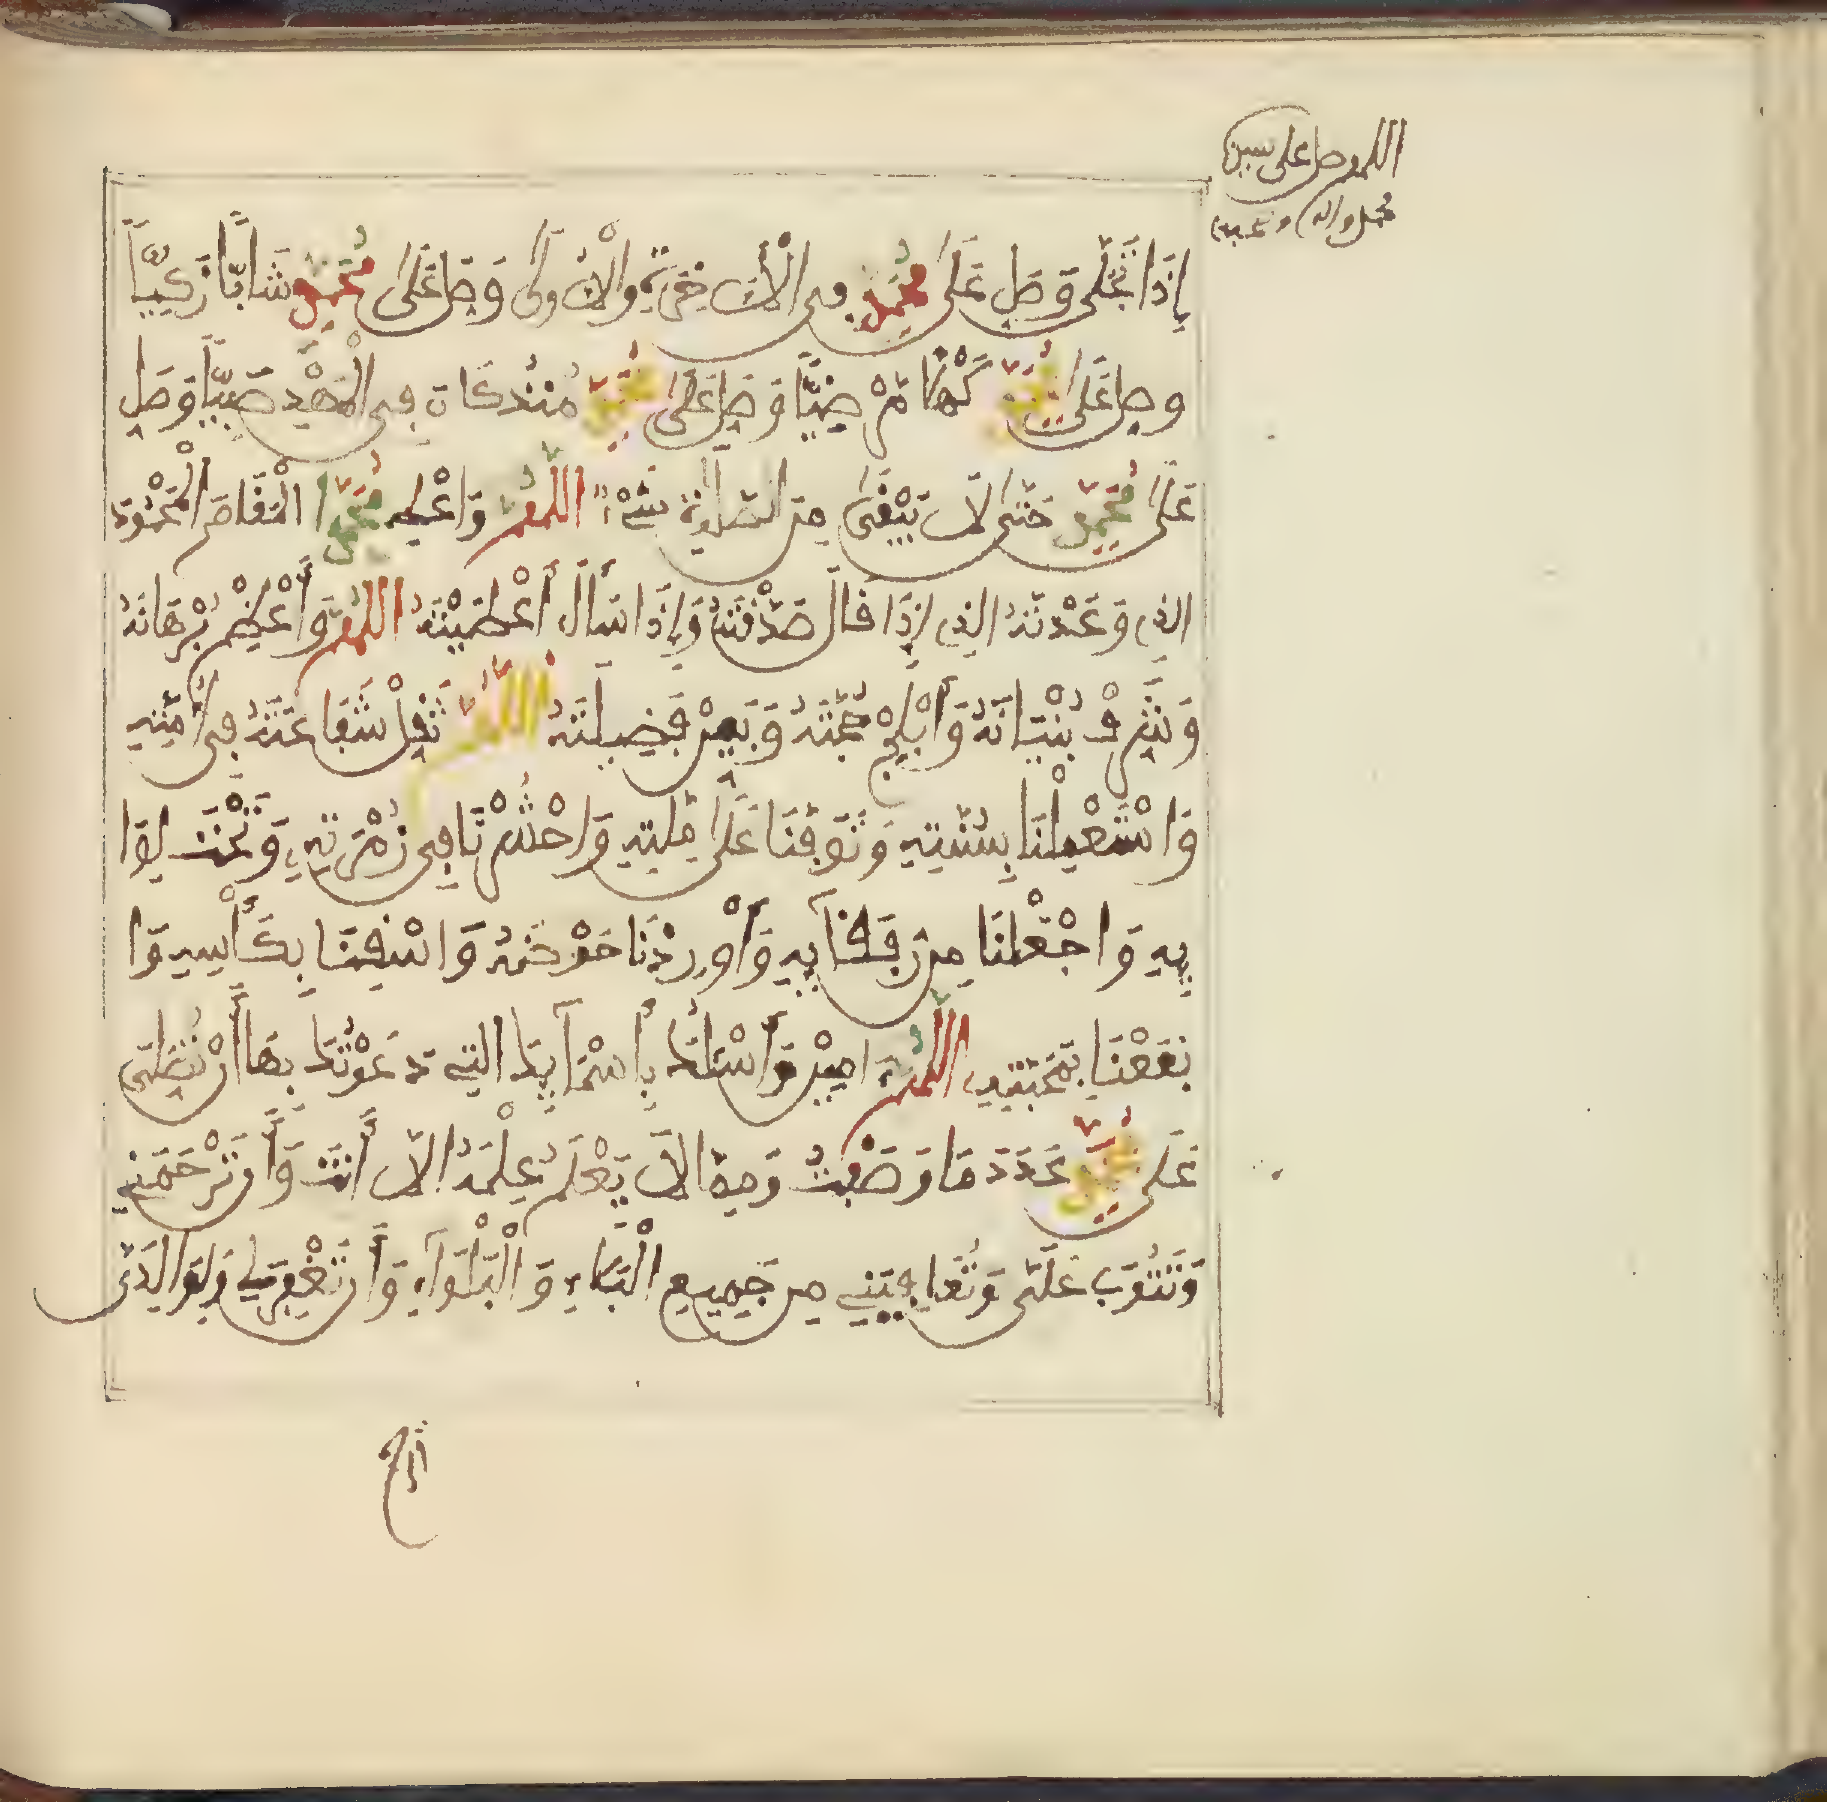 اللهم صل على سيدنا
محمد واله وصحبه
إِذَا تَجَلَّى وَصَلِّ عَلَى مُحَمَّدٍ فِي الْأَخِرَةِ وَالْأُولَى وَصَلِّ عَلَى مُحَمَّدٍ شَابًّا زَكِيًّا
وصل عَلَى مُحَمَّدٍ كَهْلًا مَرْضِيًّا وَصَلِّ عَلَى مُحَمَّدٍ مُنْذُ كَانَ فِي الْمَهْدِ صَبِيًّا وَصَلِّ
عَلَى مُحَمَّدٍ حَتَّى لَا يَبْقَى مِنَ الصَّلَوٰةِ شَيْءٌ اللَّهُمَّ وَاعْطِ مُحَمَّدًا الْمَقَامَ الْمَحْمُودَ
الذِي وَعَدتَّهُ الذِي إِذَا قَالَ صَدَّقْتَهُ وَإِذَا سَأَلَ أَعْطَيْتَهُ اللَّهُمَّ وَأَعْظِمْ بُرْهَانَهُ
وَشَرِّفْ بُنْيَانَهُ وَأَبْلِجْ حُجَّتَهُ وَبَيِّنْ فَضِيلَتَهُ اللَّهُمَّ تَقَبَّلْ شَفَاعَتَهُ فِي أُمَّتِهِ
وَاسْتَعْمِلْنَا بِسُنَّتِهِ وَتَوَفَّنَا عَلَى مِلَّتِهِ وَاحْشُرْنَا فِي زُمْرَتِهِ وَتَحْتَ لِوَا
يِهِ وَاجْعَلْنَا مِن رُفَقَآيِهِ وَأَوْرِدْنَا حَوْضَهُ وَاسْقِنَا بِكَأْسِهِ وَا
نفَعْنَا بِمَحَبَّتِهِ اللَّهُمَّ ءَامِينْ وَأَسْئَلُكَ بِأَسْمَآيِكَ التِي دَعَوْتُكَ بِهَا أَن تُصَلِّيَ
عَلَى مُحَمَّدٍ عَدَدَ مَا وَصَفْتُ وَمِمَّا لَا يَعْلَمُ عِلْمَهُ إِلَّا أَنتَ وَأَن تَرْحَمَنِي
وَتَتُوبَ عَلَيَّ وَتُعَافِيَنِي مِن جَمِيعِ الْبَلَاءِ وَالْبَلْوَاءِ وَأَن تَغْفِرَ لِي وَلِوَالِدَيَّ